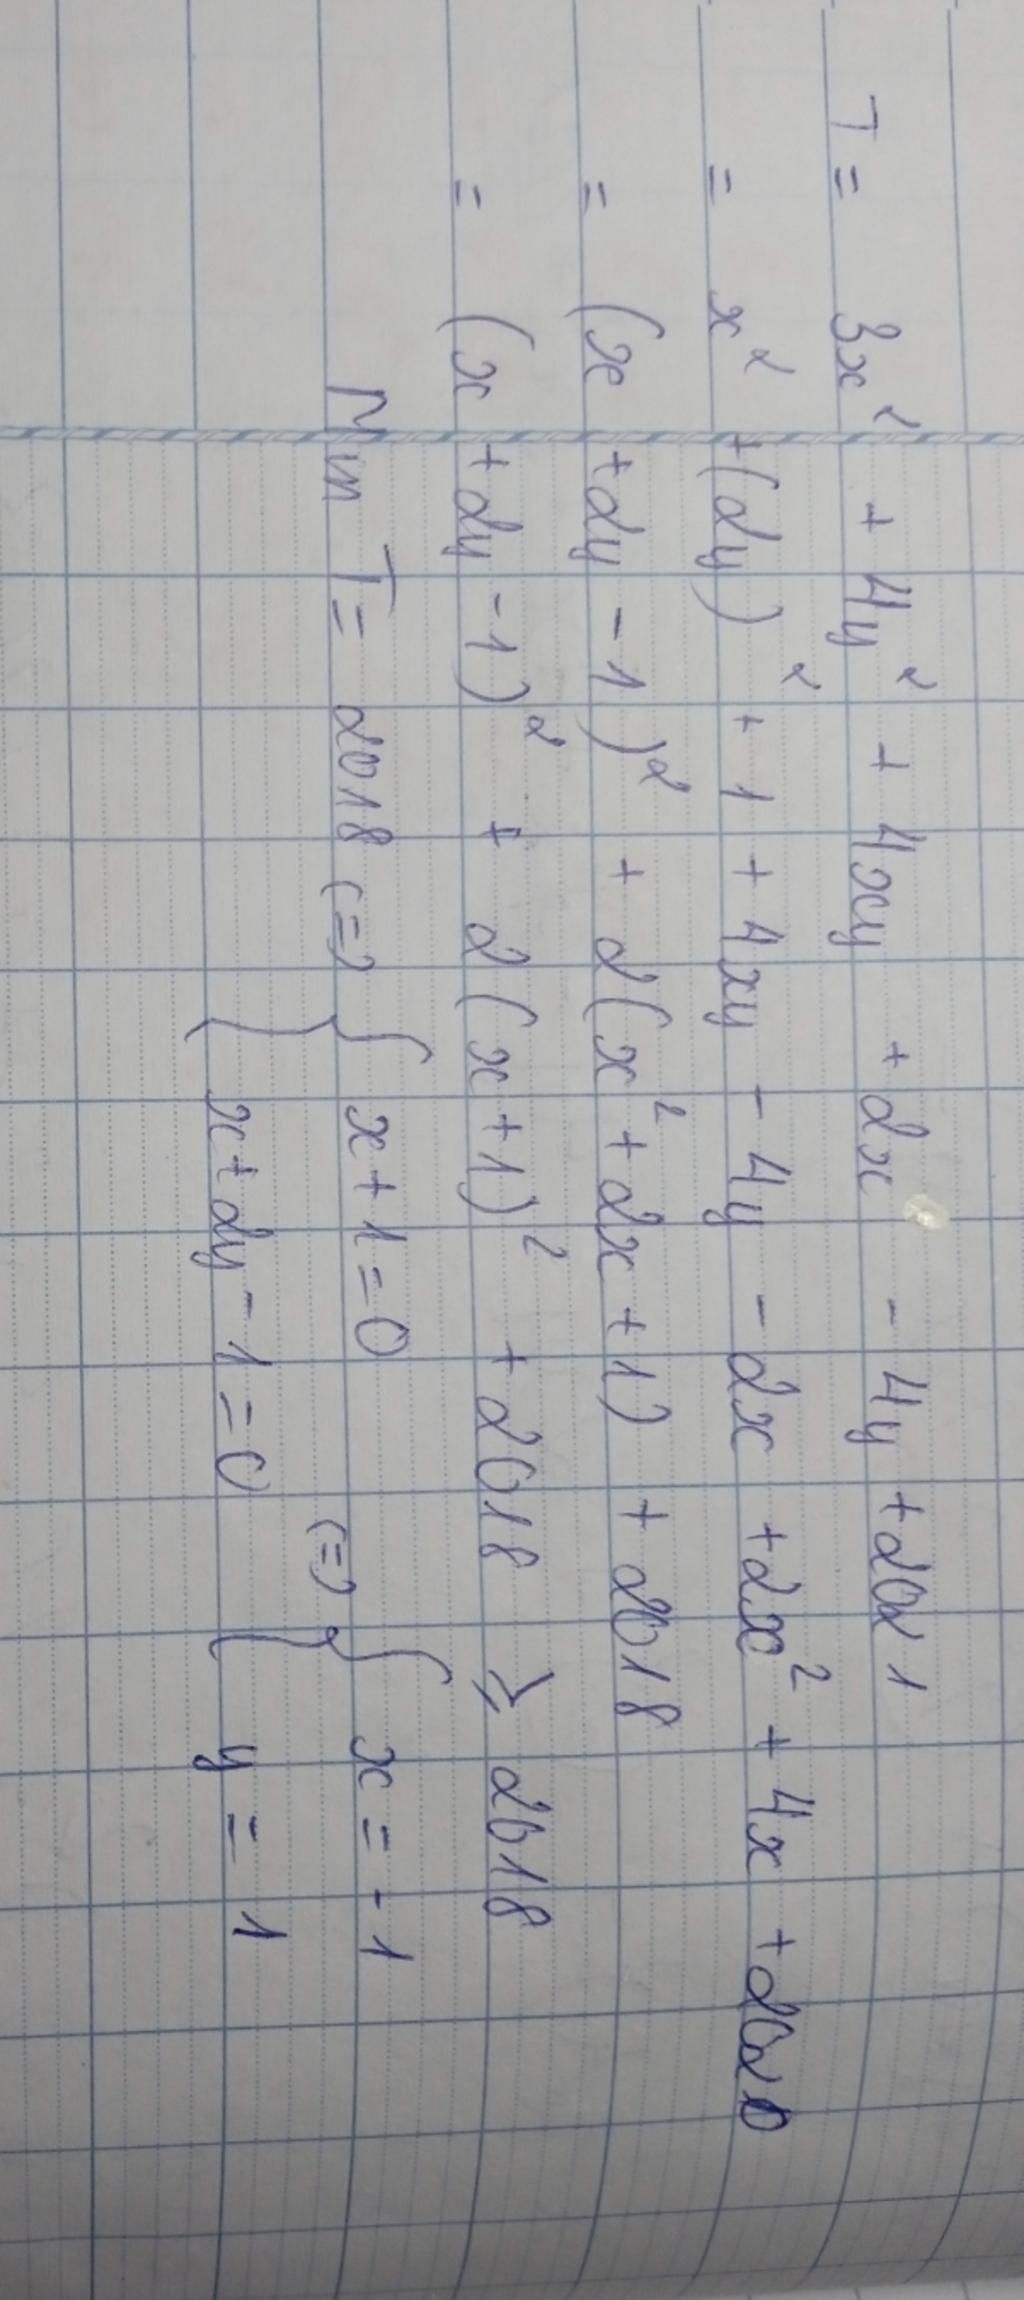 T = 3x² + 4y² + 4xy + 2x - 4y + 2021
= x² + (2y)² + 1 + 4xy - 4y - 2x + 2x² + 4x + 2020
= (x + 2y - 1)² + 2(x² + 2x + 1) + 2018
= (x + 2y - 1)² + 2(x + 1)² + 2018 ≥ 2018
Min T = 2018 (=) { x + 1 = 0 (=) { x = -1
x + 2y - 1 = 0 y = 1